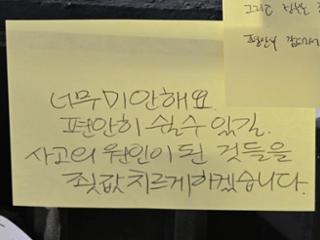 너무 미안해요.
편안히 쉴수 있길.
사고의 원인이 된 것들을
죗값 치르게하겠습니다.
그리고
편안히